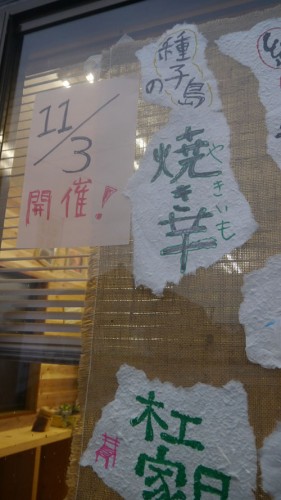 11/3
開催!
種子島
の
焼き芋
やきいも
杠
家